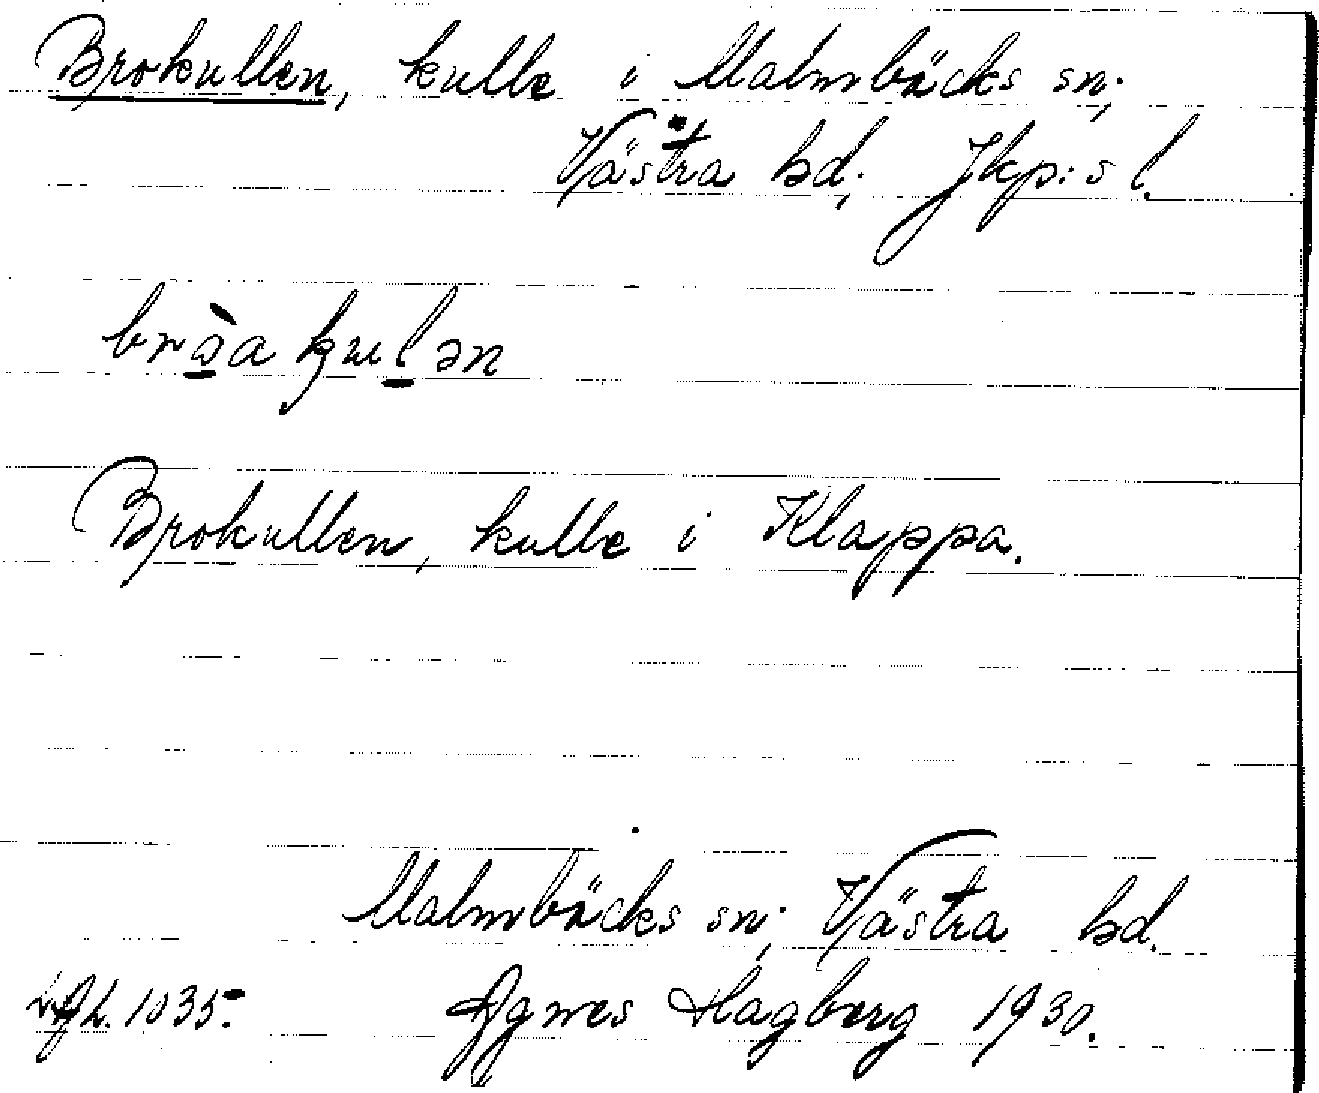 Brokullen, kulle i Malmbäcks sn;
Västra hd; Jkp:s l.
Brokullen, kulle i Klappa.
Malmbäcks sn; Västra hd.
1035. Agnes Hagberg 1930.